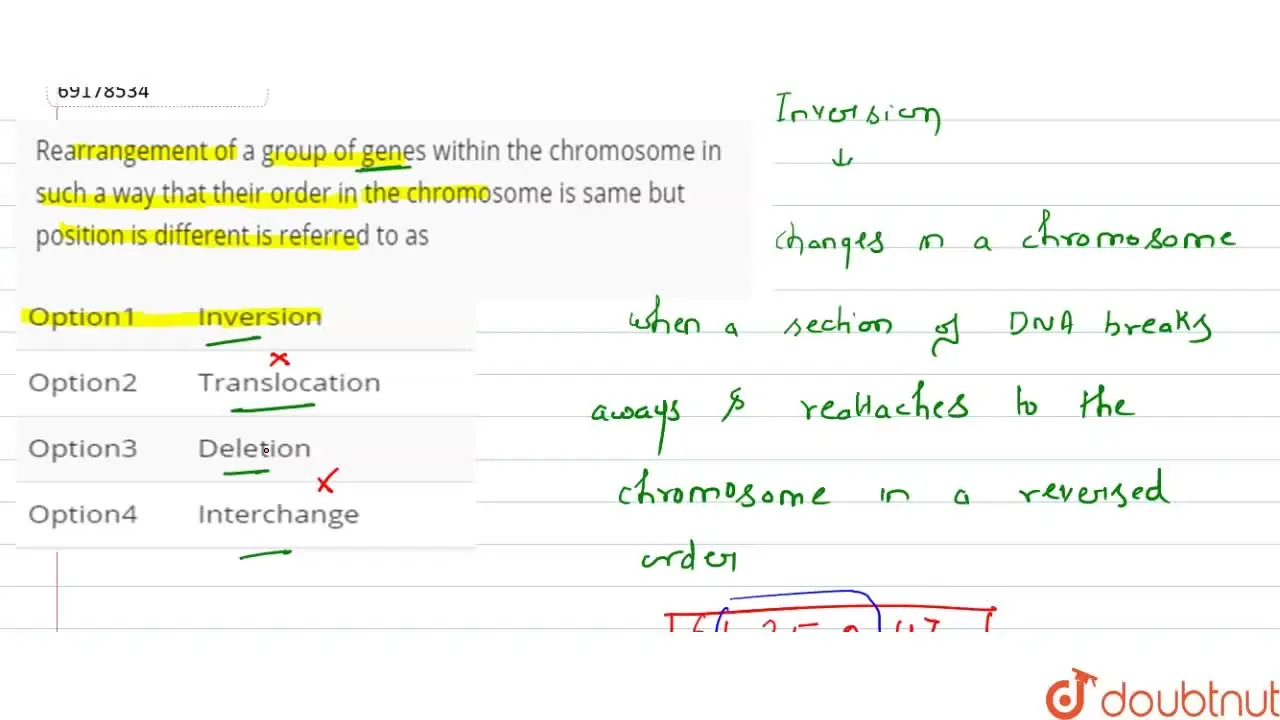 69178534
Rearrangement of a group of genes within the chromosome in
such a way that their order in the chromosome is same but
position is different is referred to as
Option1 Inversion
Option2 Translocation
Option3 Deletion
Option4 Interchange
Inversion
↓
changes in a chromosome
when a section of DNA breaks
aways & reattaches to the
chromosome in a reversed
order
doubtnut